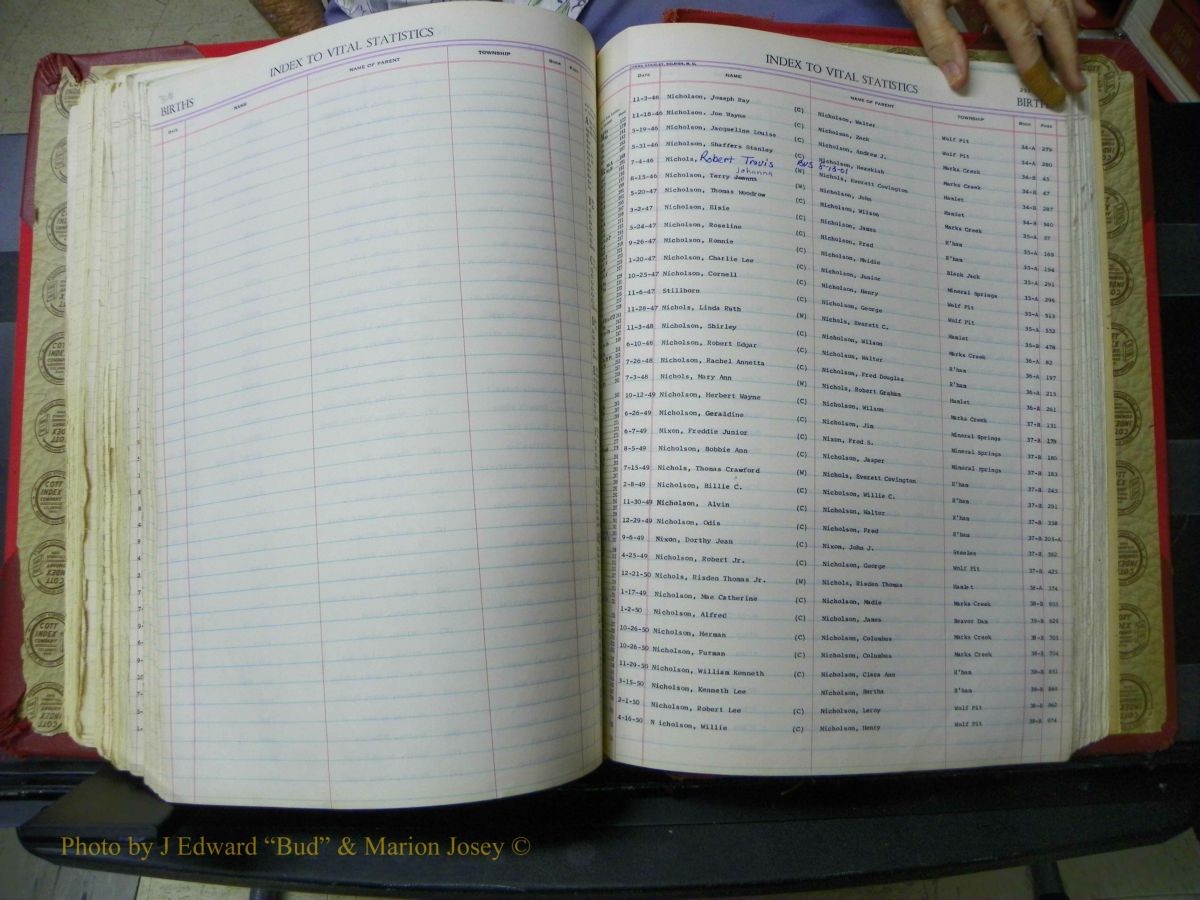 INDEX TO VITAL STATISTICS
BIRTHS
DATE NAME NAME OF PARENT TOWNSHIP BOOK PAGE
INDEX TO VITAL STATISTICS
BIRTHS
DATE NAME NAME OF PARENT TOWNSHIP BOOK PAGE
11-3-46 Nicholson, Joseph Ray (C) Nicholson, Walter Wolf Pit 34-A 279
11-18-46 Nicholson, Joe Wayne (C) Nicholson, Zack Wolf Pit 34-A 280
3-19-46 Nicholson, Jacqueline Louise (C) Nicholson, Andrew J. Marks Creek 34-B 45
5-31-46 Nicholson, Shaffers Stanley (C) Nicholson, Hezekiah Marks Creek 34-B 47
7-4-46 Nichols, Robert Travis (W) Nichols, Everett Covington Hamlet 34-B 287
Johanna
8-15-46 Nicholson, Terry (W) Nicholson, John Hamlet 34-B 940
5-20-47 Nicholson, Thomas Woodrow (C) Nicholson, Wilson Marks Creek 35-A 37
3-2-47 Nicholson, Elsie (C) Nicholson, James R'ham 35-A 169
5-24-47 Nicholson, Roseline (C) Nicholson, Fred R'ham 35-A 194
9-26-47 Nicholson, Ronnie (C) Nicholson, Maidie Black Jack 35-A 291
1-20-47 Nicholson, Charlie Lee (C) Nicholson, Junior Mineral Springs 35-A 296
10-25-47 Nicholson, Cornell (C) Nicholson, Henry Wolf Pit 35-A 513
11-6-47 Stillborn (C) Nicholson, George Wolf Pit 35-A 532
11-28-47 Nichols, Linda Ruth (W) Nichols, Everett C. Hamlet 35-B 478
11-3-48 Nicholson, Shirley (C) Nicholson, Wilson Marks Creek 36-A 82
6-10-48 Nicholson, Robert Edgar (C) Nicholson, Walter R'ham 36-A 197
7-26-48 Nicholson, Rachel Annetta (C) Nicholson, Fred Douglas R'ham 36-A 213
7-3-48 Nichols, Mary Ann (W) Nichols, Robert Graham Hamlet 36-A 261
10-12-49 Nicholson, Herbert Wayne (C) Nicholson, Wilson Marks Creek 37-B 131
6-26-49 Nicholson, Geraldine (C) Nicholson, Jim Mineral Springs 37-B 178
6-7-49 Nixon, Freddie Junior (C) Nixon, Fred S. Mineral Springs 37-B 180
8-5-49 Nicholson, Bobbie Ann (C) Nicholson, Jasper Mineral Springs 37-B 183
7-15-49 Nichols, Thomas Crawford (W) Nichols, Everett Covington R'ham 37-B 243
2-8-49 Nicholson, Billie C. (C) Nicholson, Willie C. R'ham 37-B 291
11-30-49 Nicholson, Alvin (C) Nicholson, Walter R'ham 37-B 338
12-29-49 Nicholson, Odis (C) Nicholson, Fred R'ham 37-B
9-6-49 Nixon, Dorthy Jean (C) Nixon, John J. Steeles 37-B 382
4-25-49 Nicholson, Robert Jr. (C) Nicholson, George Wolf Pit 37-B 425
12-21-50 Nichols, Risden Thomas Jr. (W) Nichols, Risden Thomas Hamlet 38-A 174
1-17-49 Nicholson, Mae Catherine (C) Nicholson, Madie Marks Creek 38-B
1-2-50 Nicholson, Alfred (C) Nicholson, James Beaver Dam 629
10-26-50 Nicholson, Herman (C) Nicholson, Columbus Marks Creek 703
10-26-50 Nicholson, Furman (C) Nicholson, Columbus Marks Creek 704
11-29-50 Nicholson, William Kenneth (C) Nicholson, Clara Ann R'ham
3-15-50 Nicholson, Kenneth Lee Nicholson, Bertha R'ham
2-1-50 Nicholson, Robert Lee (C) Nicholson, Leroy Wolf Pit
4-16-50 N icholson, Willie (C) Nicholson, Henry Wolf Pit
COTT INDEX COMPANY
Photo by J Edward “Bud” & Marion Josey ©